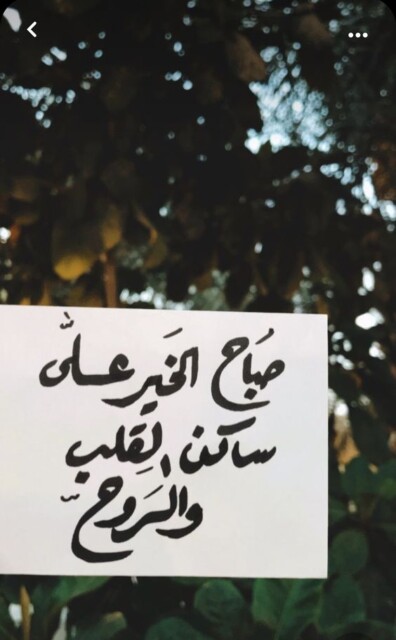 صُباح الخَير علىّ
ساكن القلب
والرَوح